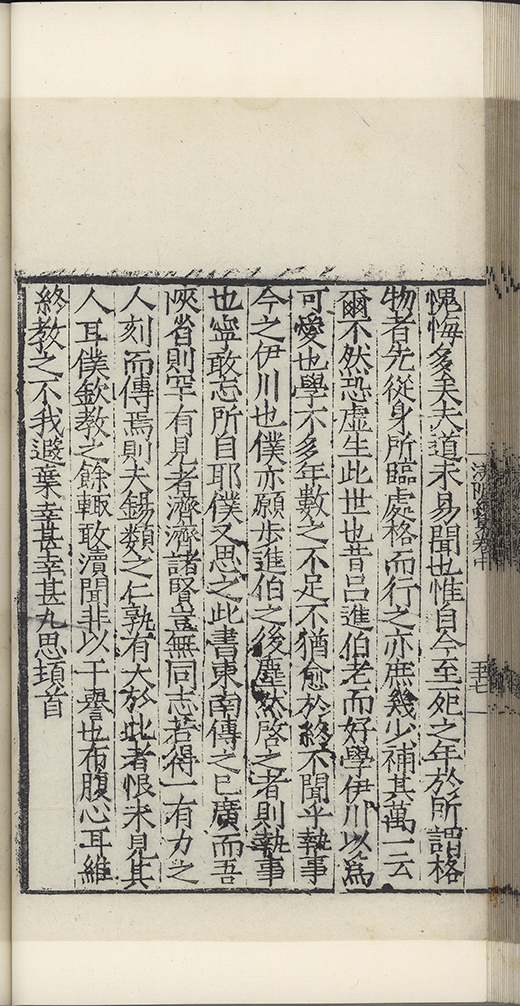 愧悔多矣夫道未易聞也惟自今至死之年於所謂格
物者先從身所臨處格而行之亦庶幾少補其萬一云
爾不然恐虛生此世也昔呂進伯老而好學伊川以爲
可愛也學不多年數之不足不猶愈於終不聞乎執事
今之伊川也僕亦願步進伯之後塵然啓之者則執事
也寧敢忘所自耶僕又思之此書東南傳之已廣而吾
陝省則罕有見者濟濟諸賢豈無同志若得一有力之
人刻而傳焉則夫錫類之仁孰有大於此者恨未見其
人耳僕欽教之餘輒敢瀆聞非以干譽也布腹心耳維
終教之不我遐棄幸甚幸甚九思頓首